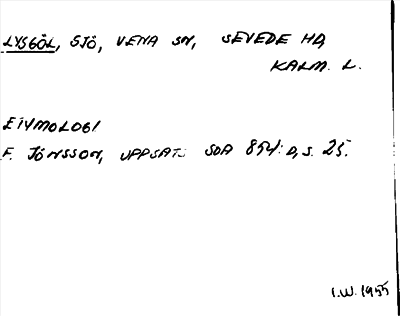 LYSGÖL, SJÖ, VENA SN, SEVEDE HD,
KALM. L.
ETYMOLOGI
F. JÖNSSON, UPPSATS SOA 854: D, S. 25.
I.W. 1955